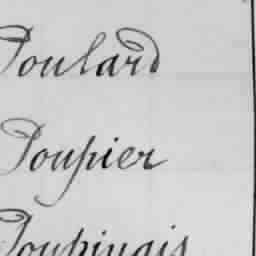 Poulard
Poupier
Poupinais